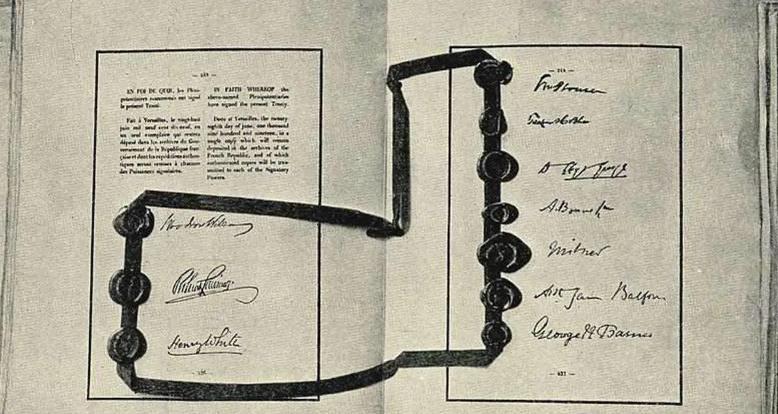 EN FOI DE QUOI, les Pléni-
potentiaires susnommés ont signé
le présent Traité.
Fait à Versailles, le vingt-huit
juin mil neuf cent dix-neuf, en
un seul exemplaire qui restera
déposé dans les archives du Gou-
vernement de la République fran-
çaise et dont les expéditions authen-
tiques seront remises à chacune
des Puissances signataires.
IN FAITH WHEREOF the
above-named Plenipotentiaries
have signed the present Treaty.
Done at Versailles, the twenty-
eighth day of June, one thousand
nine hundred and nineteen, in a
single copy which will remain
deposited in the archives of the
French Republic, and of which
authenticated copies will be trans-
mitted to each of the Signatory
Powers.
Woodrow Wilson
Robert Lansing
Henry White
Milner
Arthur James Balfour
George N Barnes